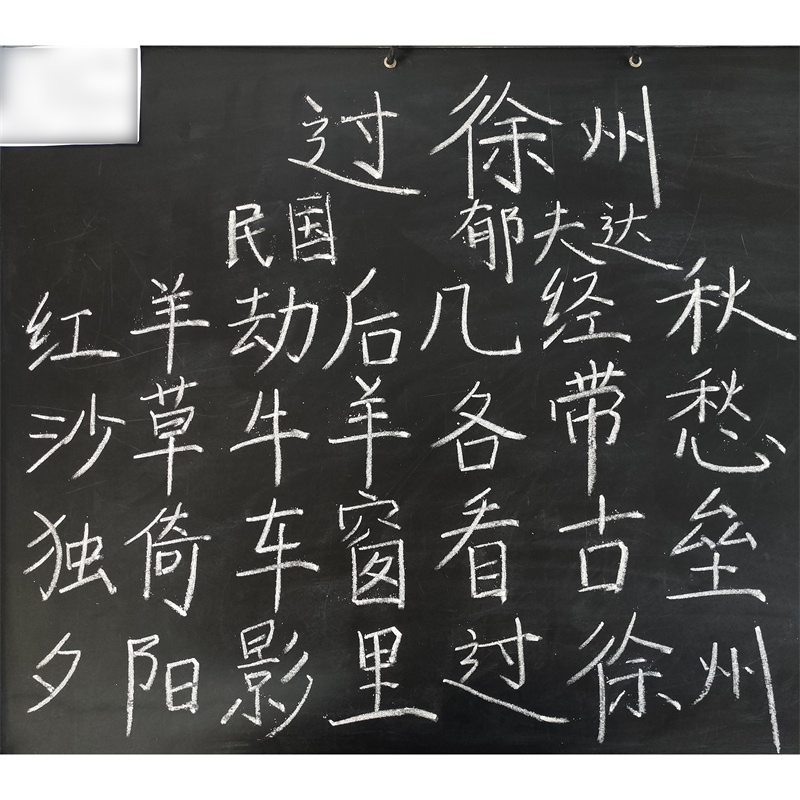 过徐州
民国 郁夫达
红羊劫后几经秋
沙草牛羊各带愁
独倚车窗看古垒
夕阳影里过徐州